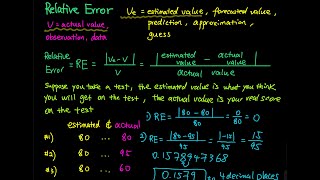 Relative Error
Ve = estimated value, forecasted value,
prediction, approximation,
guess
V = actual value,
observation, data
Relative Error = RE = |Ve - V| / V = |estimated value - actual value| / actual value
Suppose you take a test, the estimated value is what you think,
you will get on the test, the actual value is your real score
on the test
estimated & actual
#1) 80 ... 80
#2) 80 ... 95
#3) 80 ... 60
1) RE = |80-80| / 80 = 0/80 = 0
2) RE = |80-95| / 95 = |-15| / 95 = 15/95
0.1578947368
0.1579 4 decimal places